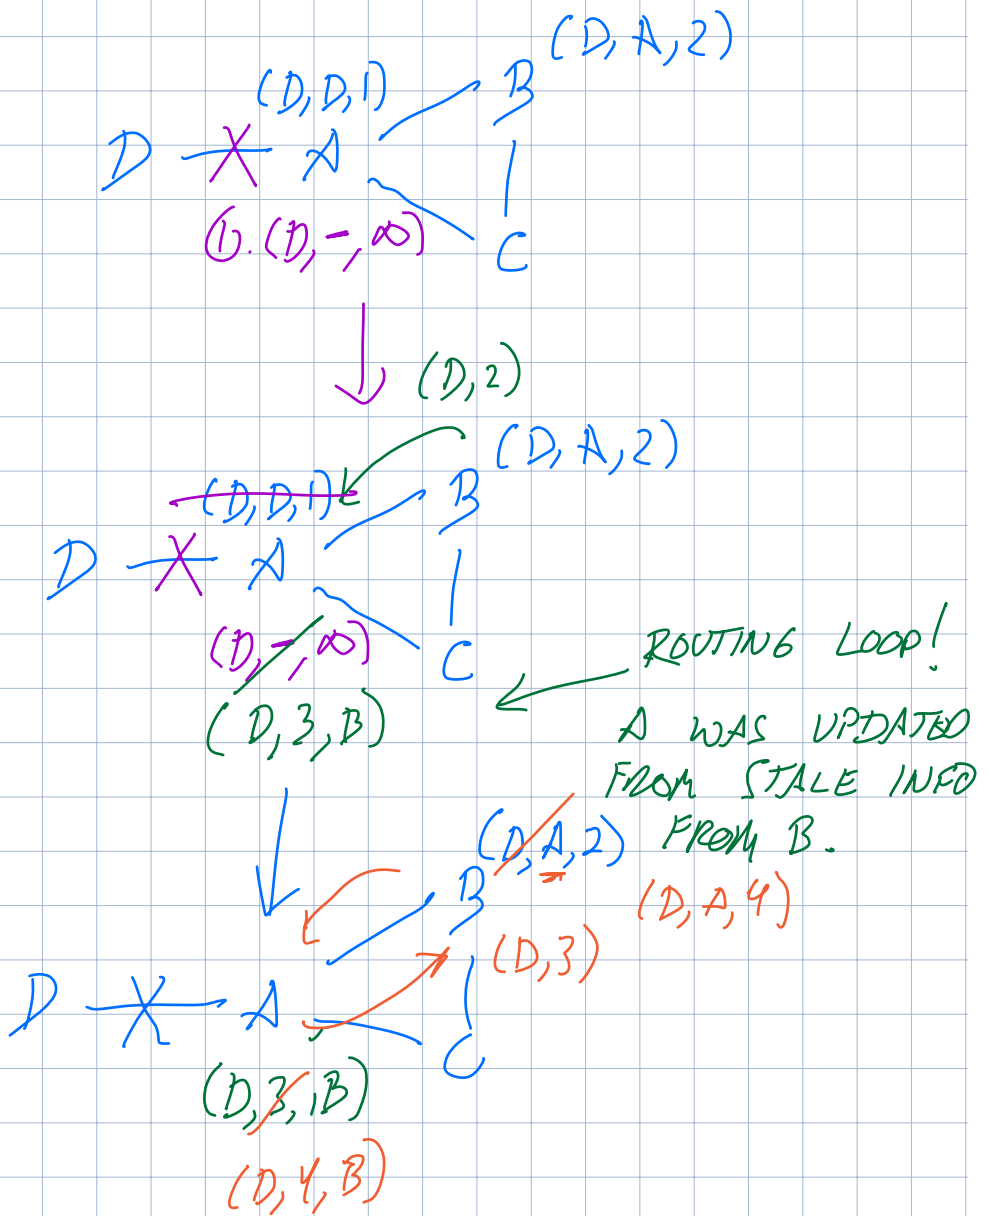 (D, A, 2)
(D, D, 1)
B
D
A
①. (D, -, ∞)
C
(D, 2)
(D, A, 2)
(D, D, 1)
B
D
A
(D, -, ∞)
C
ROUTING LOOP!
(D, 3, B)
A WAS UPDATED
FROM STALE INFO
FROM B.
(D, A, 2)
B
(D, A, 4)
(D, 3)
D
A
C
(D, 3, B)
(D, 4, B)